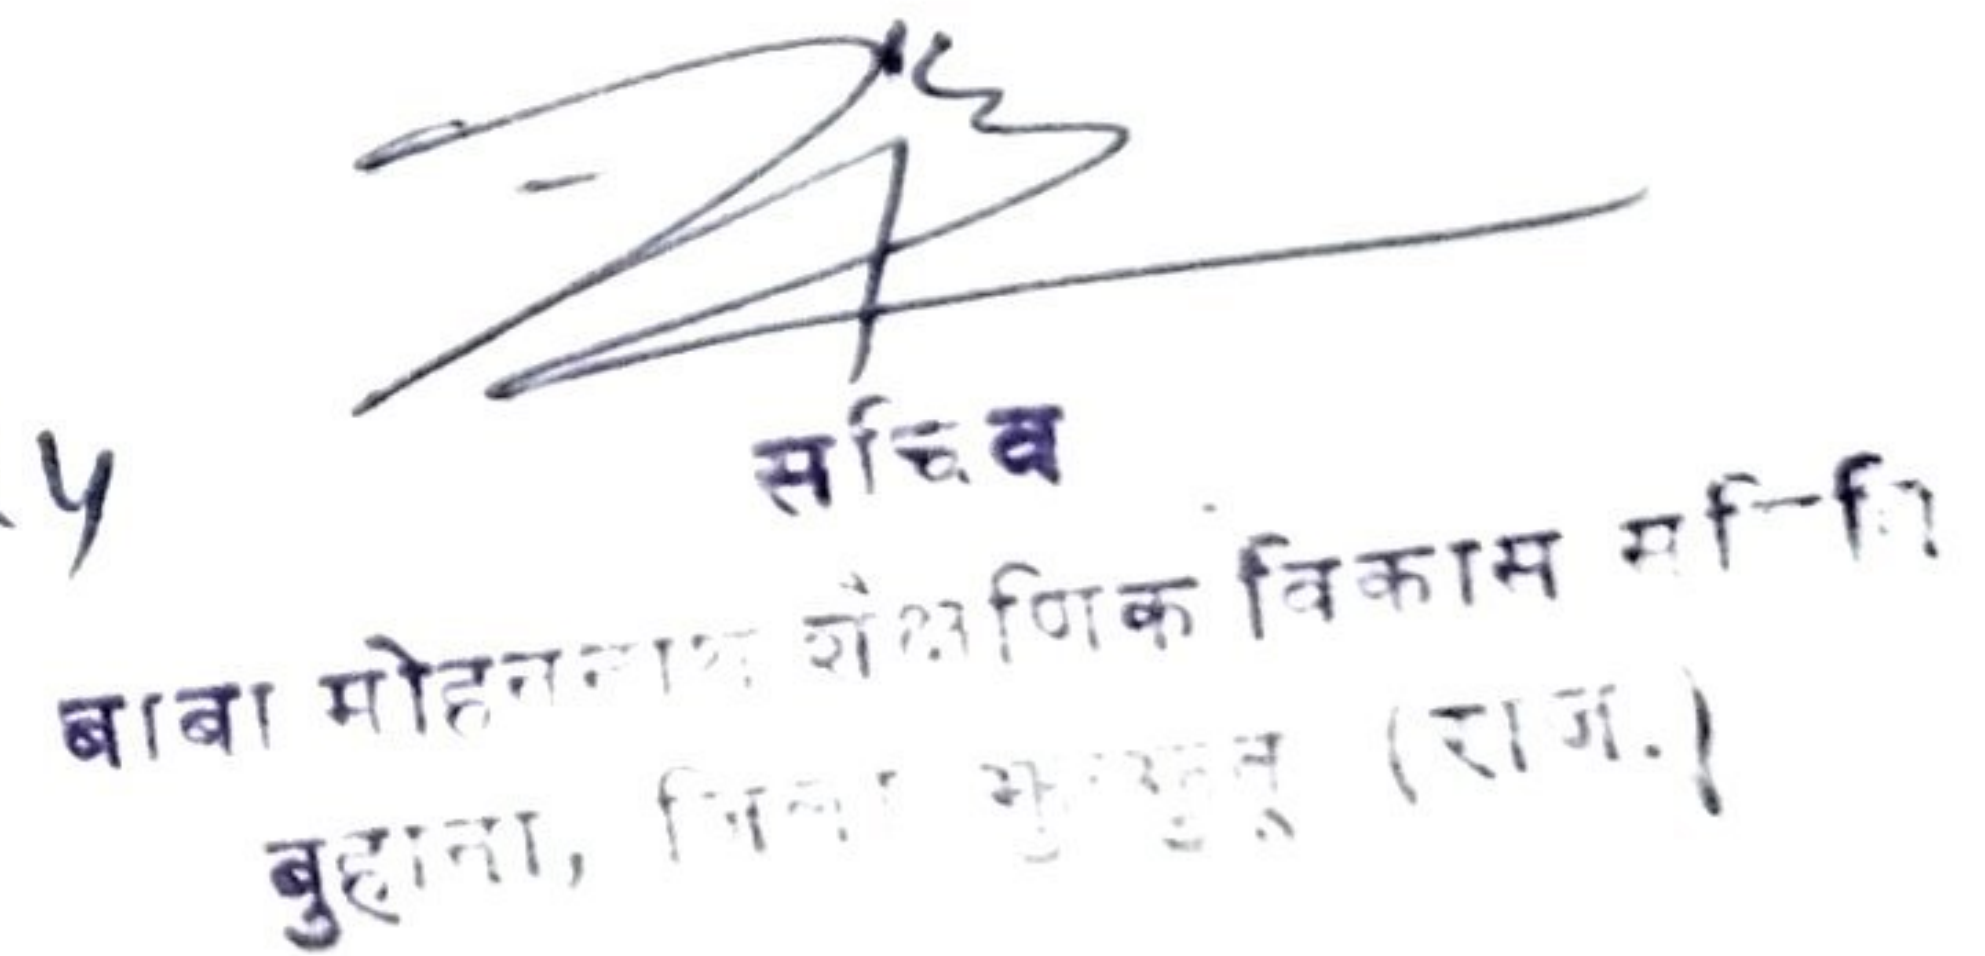 सचिव
बाबा मोहननाथ शैक्षणिक विकास समिति
बुहाना, जिला झुन्झुनू (राज.)